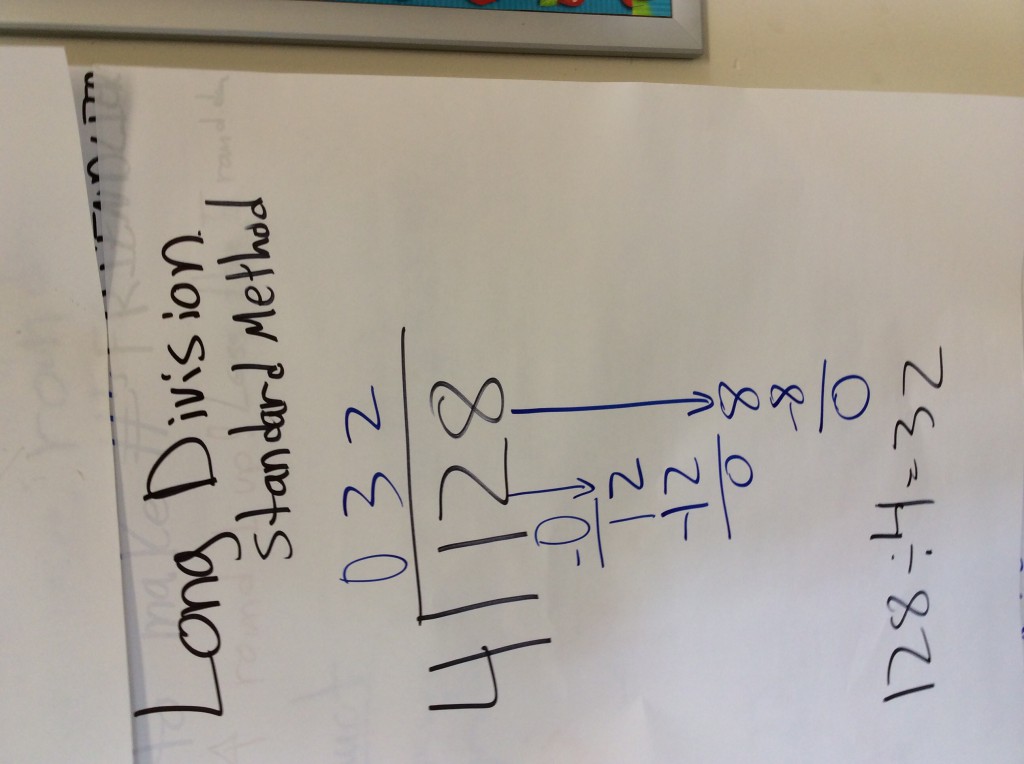 Long Division
Standard Method
0 3 2
4 128
-0
12 8
-12 -8
0 0
128 ÷ 4 = 32